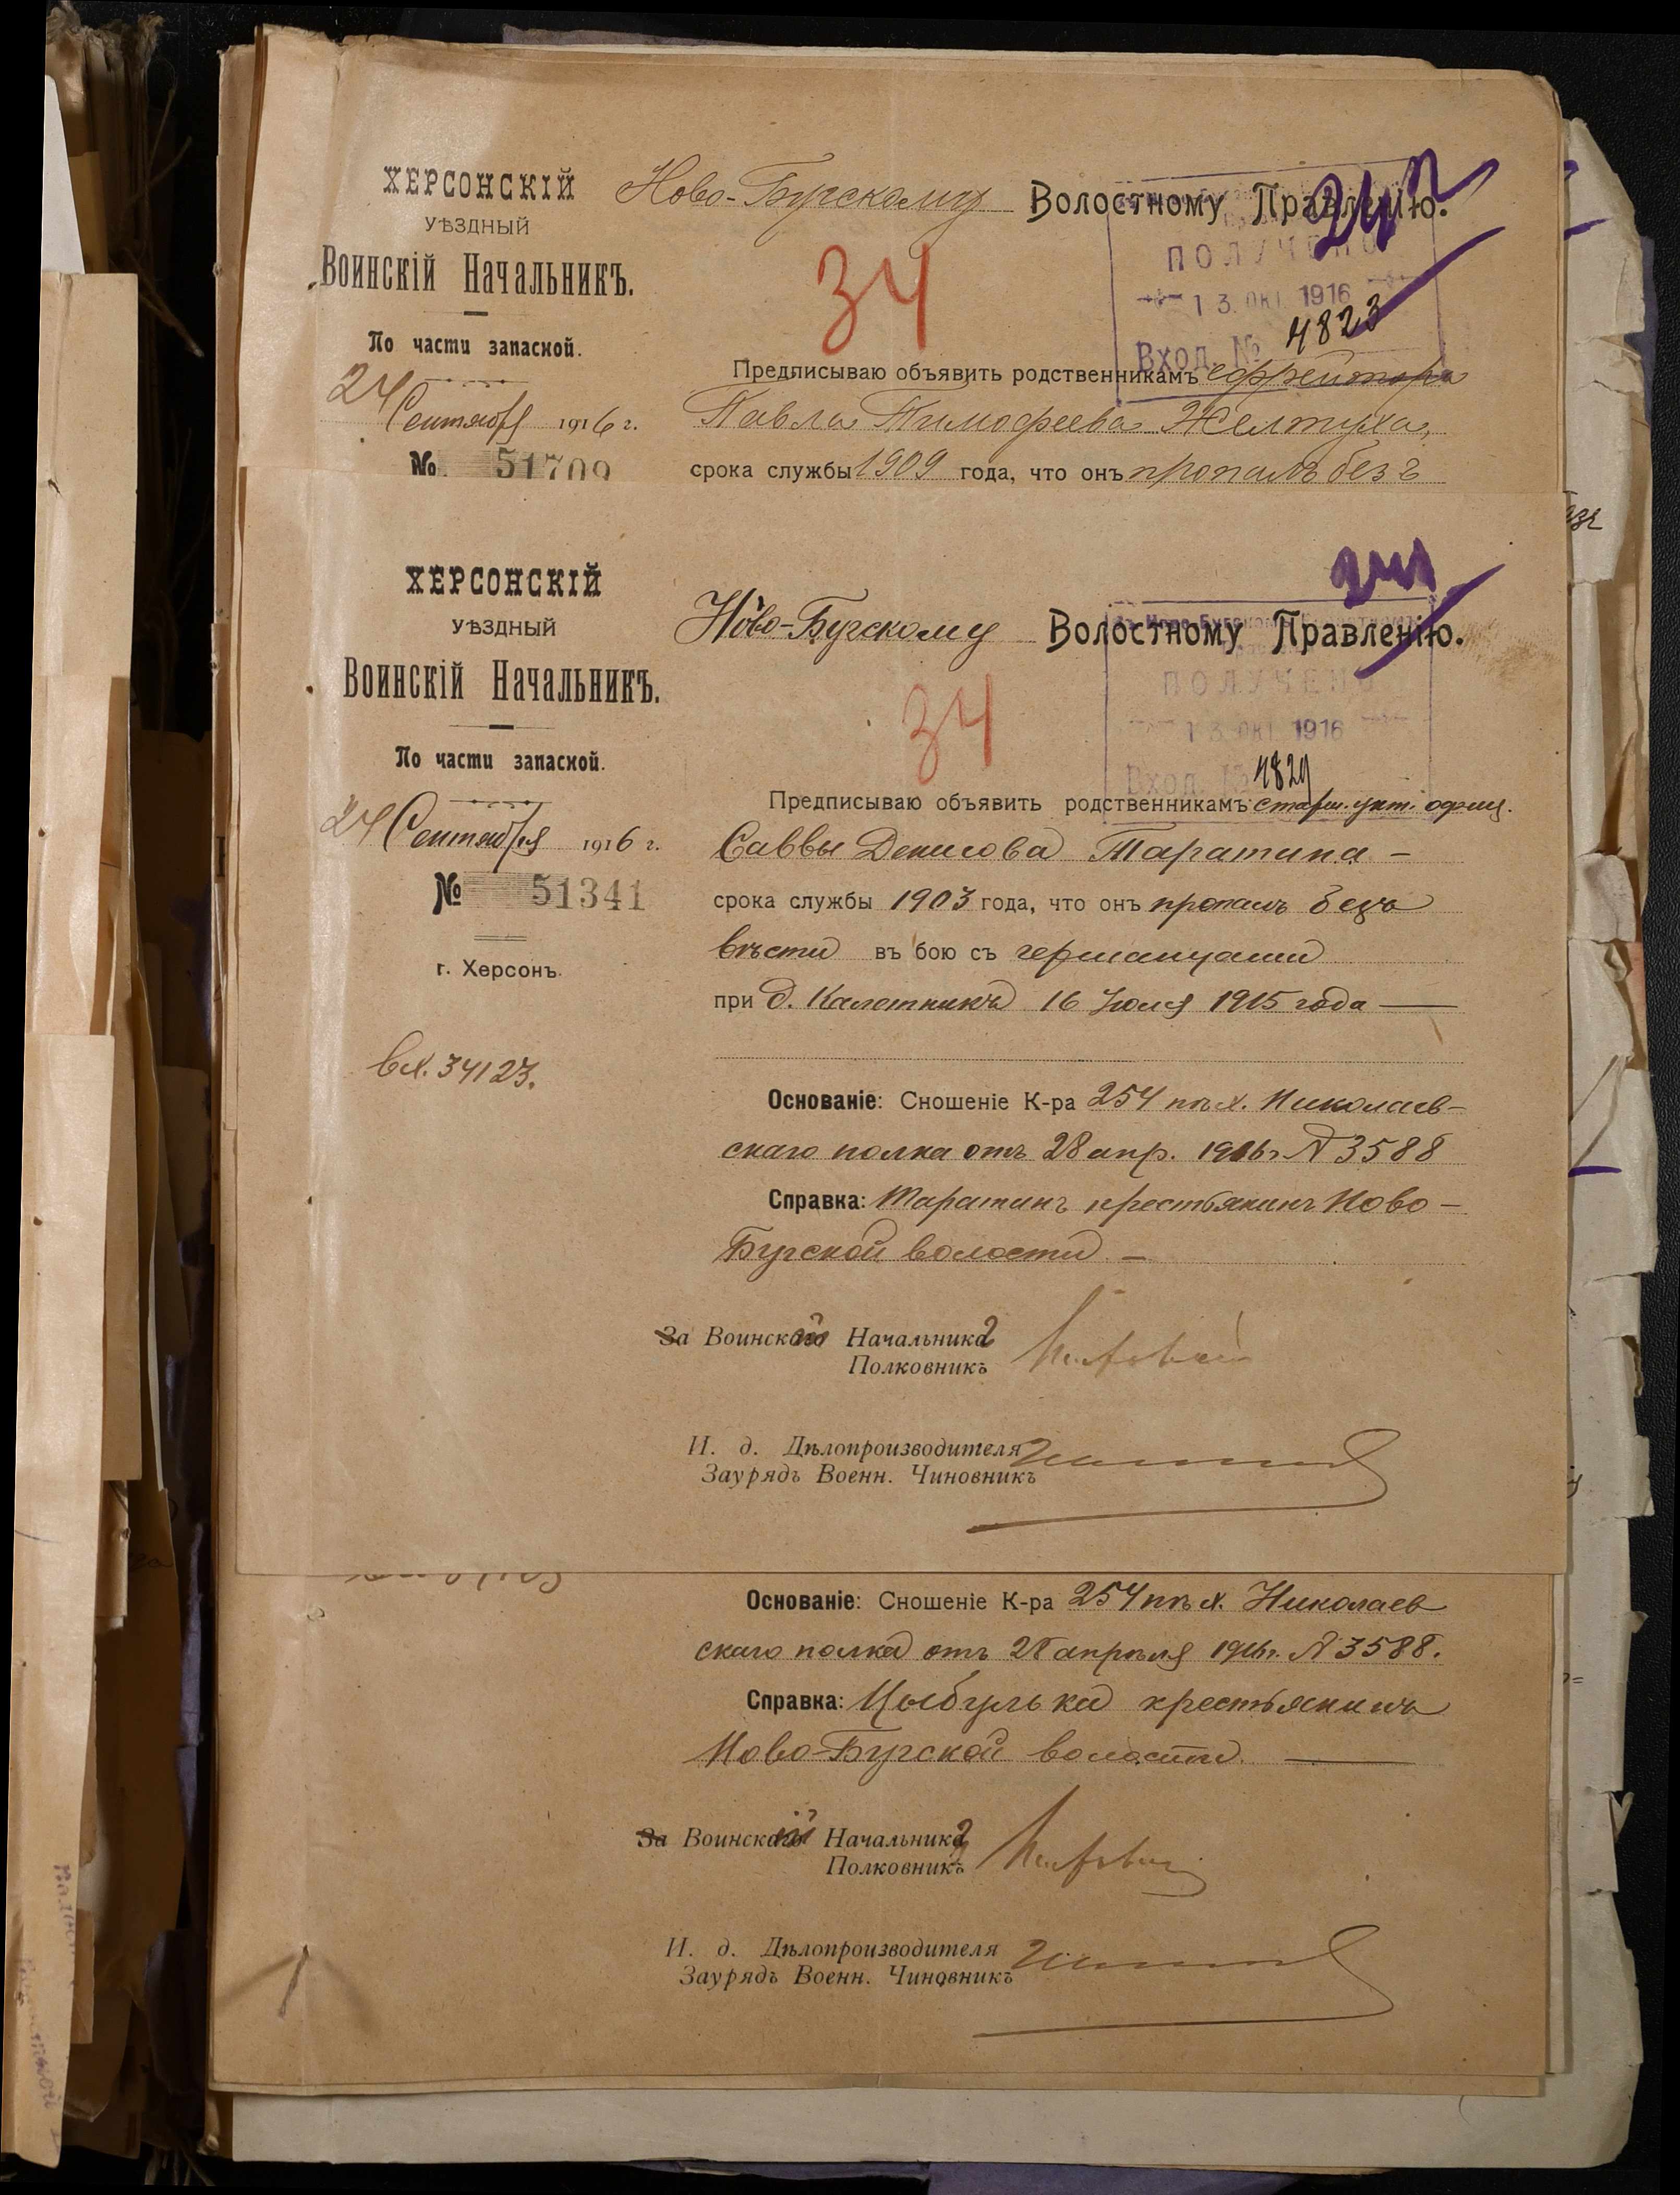 ХЕРСОНСКІЙ
УѢЗДНЫЙ
Воинскій Начальникъ.
По части запасной.
24 Сентября 1916 г.
№ 51709
Ново-Бугскому Волостному Правленію.
34
ПОЛУЧЕНО
13. ОКТ. 1916
Вход. № 4823
Предписываю объявить родственникамъ ефрейтора
Павла Тимофеева Желтуха,
срока службы 1909 года, что онъ пропалъ безъ
ХЕРСОНСКІЙ
УѢЗДНЫЙ
Воинскій Начальникъ.
По части запасной.
24 Сентября 1916 г.
№ 51341
г. Херсонъ.
вх. 34123.
Ново-Бугскому Волостному Правленію.
34
ПОЛУЧЕНО
13 ОКТ 1916
Вход. 4824
Предписываю объявить родственникамъ старш. унт. офиц.
Саввы Денисова Таратина –
срока службы 1903 года, что онъ пропалъ безъ
вѣсти въ бою съ германцами
при д. Калетникъ 16 Іюля 1915 года —
Основаніе: Сношеніе К-ра 254 пѣх. Николаев-
скаго полка отъ 28 апр. 1916 г. № 3588
Справка: Таратинъ крестьянинъ Ново-
Бугской волости –
За Воинскій Начальникъ
Полковникъ
И. д. Дѣлопроизводителя
Заурядъ Военн. Чиновникъ
Основаніе: Сношеніе К-ра 254 пѣх. Николаев
скаго полка отъ 28 апрѣля 1916 г. № 3588.
Справка: Цыбулька крестьянинъ
Ново-Бугской волости. —
За Воинскій Начальникъ
Полковникъ
И. д. Дѣлопроизводителя
Заурядъ Военн. Чиновникъ